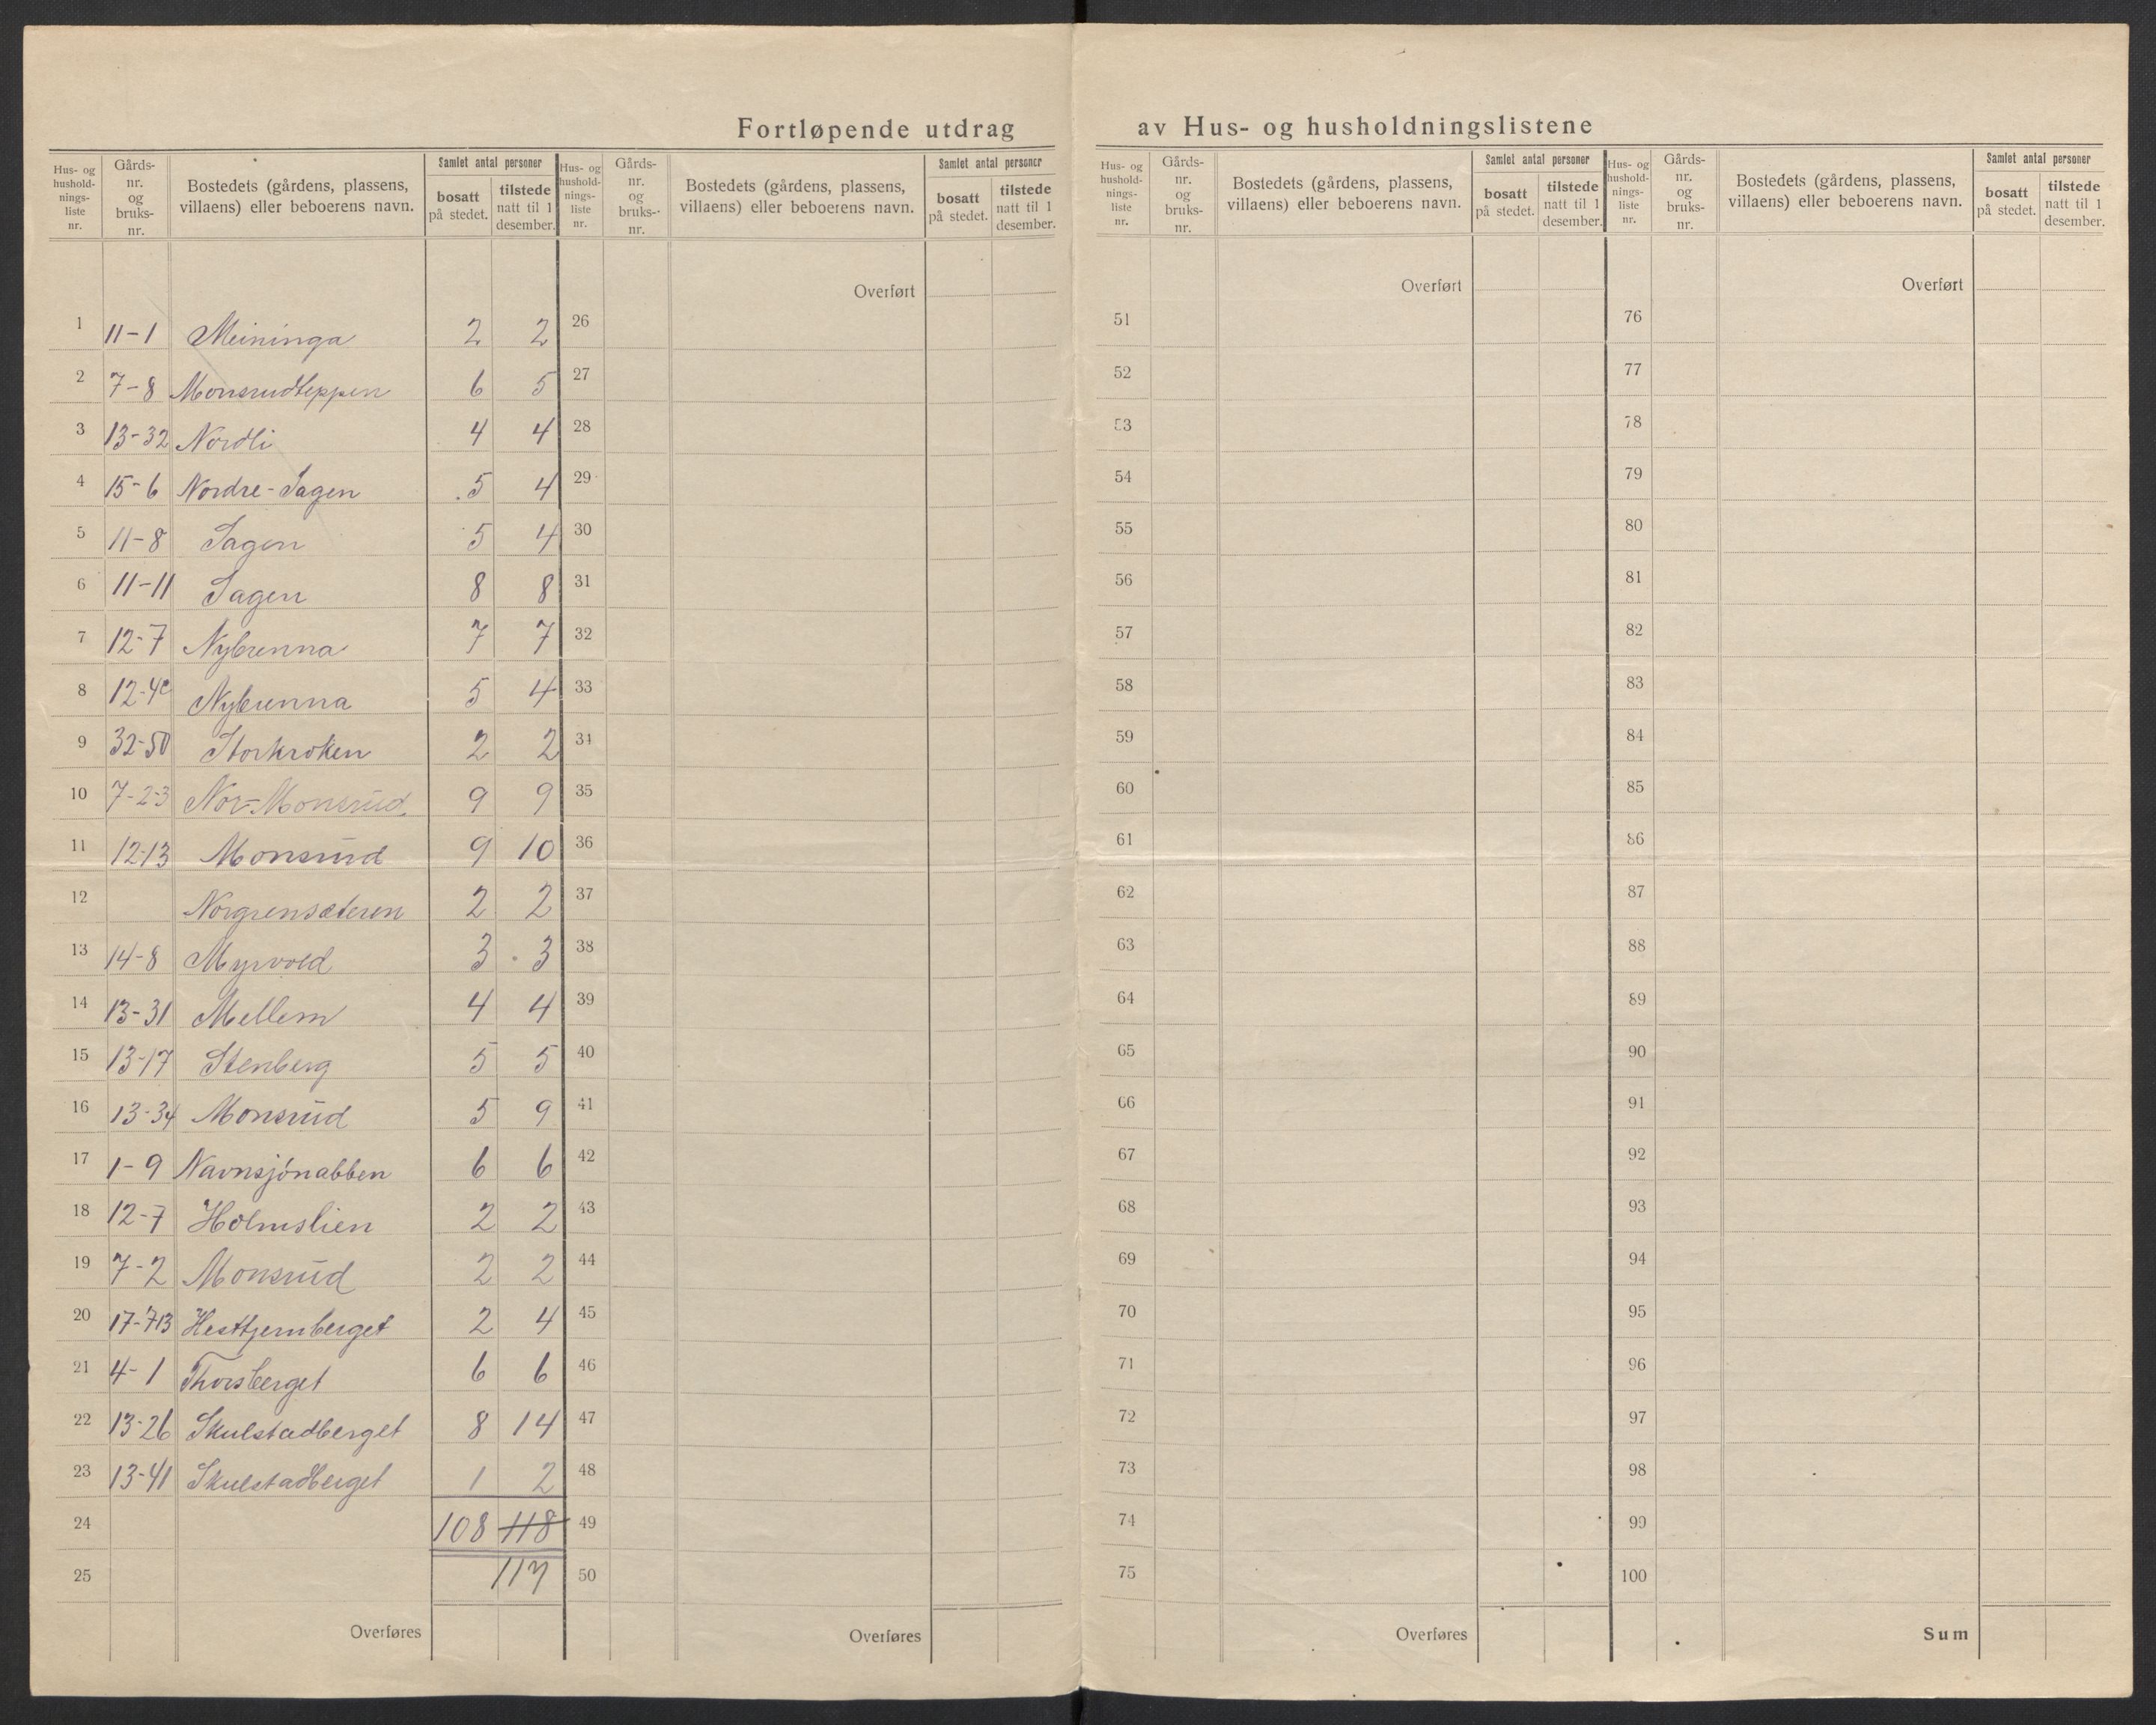 Fortløpende utdrag av Hus- og husholdningslistene
Hus- og hushold- nings- liste nr. | Gårds- nr. og bruks- nr. | Bostedets (gårdens, plassens, villaens) eller beboerens navn. | Samlet antal personer | bosatt på stedet. | tilstede natt til 1 desember.
Hus- og hushold- nings- liste nr. | Gårds- nr. og bruks- nr. | Bostedets (gårdens, plassens, villaens) eller beboerens navn. | Samlet antal personer | bosatt på stedet. | tilstede natt til 1 desember.
Hus- og hushold- nings- liste nr. | Gårds- nr. og bruks- nr. | Bostedets (gårdens, plassens, villaens) eller beboerens navn. | Samlet antal personer | bosatt på stedet. | tilstede natt til 1 desember.
Hus- og hushold- nings- liste nr. | Gårds- nr. og bruks- nr. | Bostedets (gårdens, plassens, villaens) eller beboerens navn. | Samlet antal personer | bosatt på stedet. | tilstede natt til 1 desember.
Overført Overført Overført
1 11-1 Meininga 2 2 26 51 76
2 7-8 Monsrudteppen 6 5 27 52 77
3 13-32 Nordli 4 4 28 53 78
4 15-6 Nordre-Sagen 5 4 29 54 79
5 11-8 Sagen 5 4 30 55 80
6 11-11 Sagen 8 8 31 56 81
7 12-7 Nybrenna 7 7 32 57 82
8 12-4c Nybrenna 5 4 33 58 83
9 32-50 Storkroken 2 2 34 59 84
10 7-2-3 Nor-Monsrud. 9 9 35 60 85
11 12-13 Monsrud 9 10 36 61 86
12 Norgrensæteren 2 2 37 62 87
13 14-8 Myrvold 3 3 38 63 88
14 13-31 Mellem 4 4 39 64 89
15 13-17 Stenberg 5 5 40 65 90
16 13-34 Monsrud 5 9 41 66 91
17 1-9 Navnsjönabben 6 6 42 67 92
18 12-7 Holmslien 2 2 43 68 93
19 7-2 Monsrud 2 2 44 69 94
20 17-713 Hesttjernberget 2 4 45 70 95
21 4-1 Thorsberget 6 6 46 71 96
22 13-26 Skulstadberget 8 14 47 72 97
23 13-41 Skulstadberget 1 2 48 73 98
24 108 118 49 74 99
25 117 50 75 100
Overføres Overføres Overføres Sum